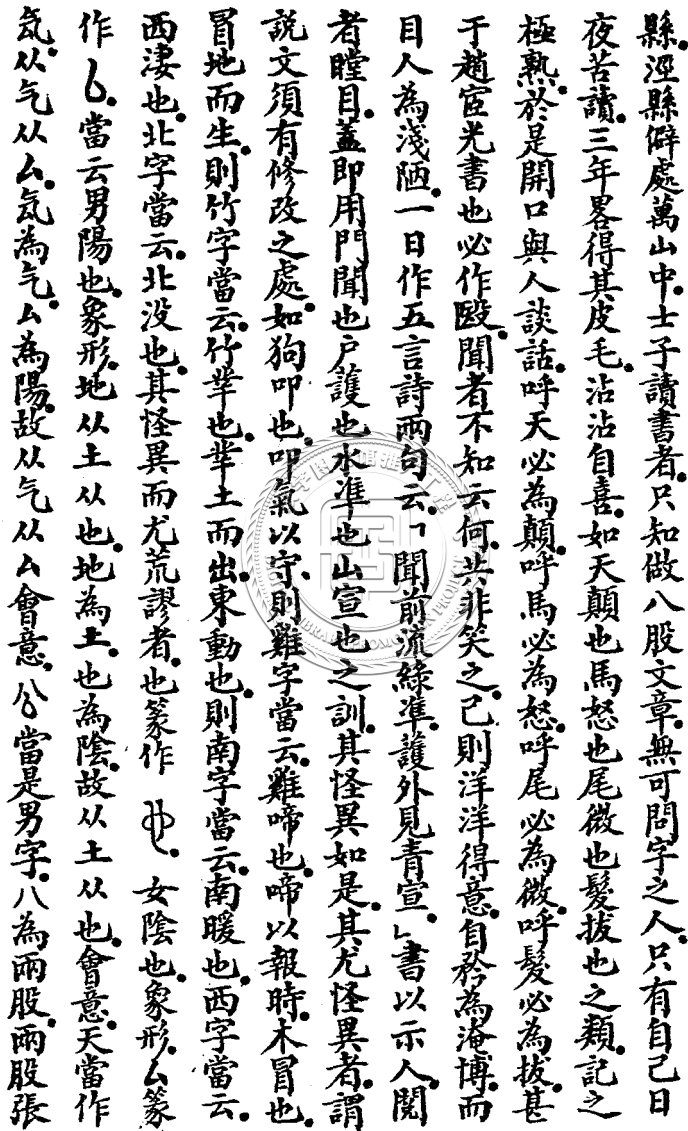 縣。涇縣僻處萬山中。士子讀書者。只知做八股文章。無可問字之人。只有自己日
夜苦讀。三年畧得其皮毛。沾沾自喜。如天顛也馬怒也尾微也髮拔也之類。記之
極熟。於是開口與人談話。呼天必為顛。呼馬必為怒。呼尾必為微。呼髮必為拔。甚
于趙宧光書也必作殹。聞者不知云何。共非笑之。己則洋洋得意。自矜為淹博。而
目人為淺陋。一日作五言詩兩句云。「聞前流綠準。護外見青宣。」書以示人。閱
者瞠目。蓋即用門聞也户護也水準也山宣也之訓。其怪異如是。其尤怪異者。謂
說文須有修改之處。如狗叩也。叩氣以守。則雞字當云。雞啼也。啼以報時。木冒也。
冒地而生。則竹字當云。竹也。土而出。東動也。則南字當云。南暖也。西字當云。
西淒也。北字當云。北没也。其怪異而尤荒謬者。也篆作 。女陰也。象形。厶篆
作 。當云男陽也。象形。地从土从也。地為土。也為陰。故从土从也。會意。天當作
氖。从气从厶。氖為气。厶為陽。故从气从厶會意。㕣當是男字。八為兩股。兩股張